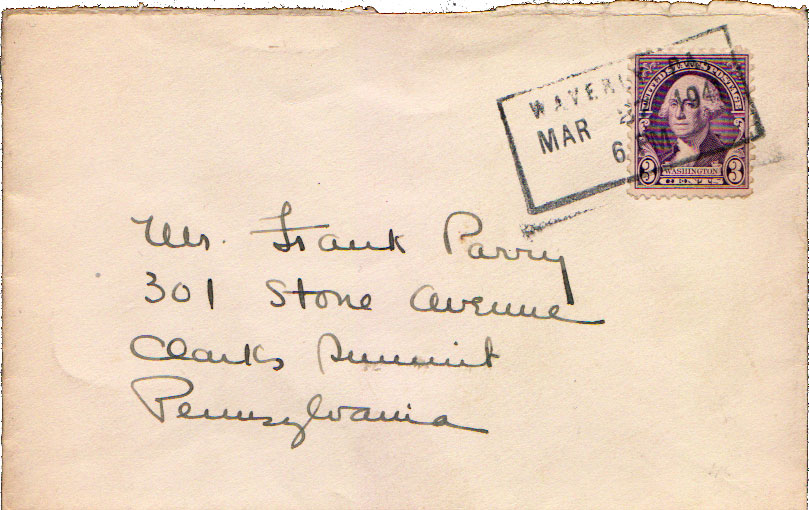 WAVERLY, PA.
MAR 194
6 PM
UNITED STATES POSTAGE
3 WASHINGTON 3
CENTS
Mr. Frank Parry
301 Stone Avenue
Clarks Summit
Pennsylvania